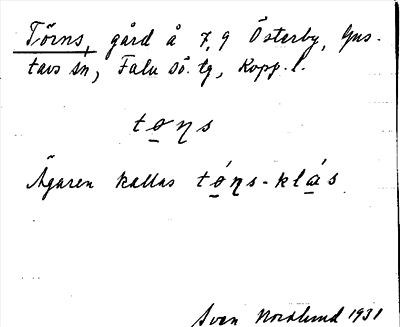 Törns, gård å 7,9 Österby, Gus-
tavs sn, Falu sö. tg, Kopp. l.
to̠ɳs
Ägaren kallas tó̠ɳs-klá̠s
Sven Nordlund 1931